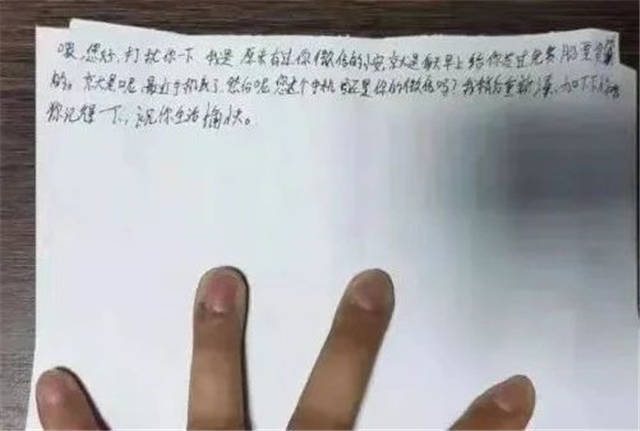 喂,您好,打扰你一下 我是 原来有过你微信的小宛就是每天早上给你发过免费股票
的。就是呢 最近手机丢了 然后呢 您这个手机 还是你的微信吗?我稍后重新 加下
你记得一下,祝你生活愉快。